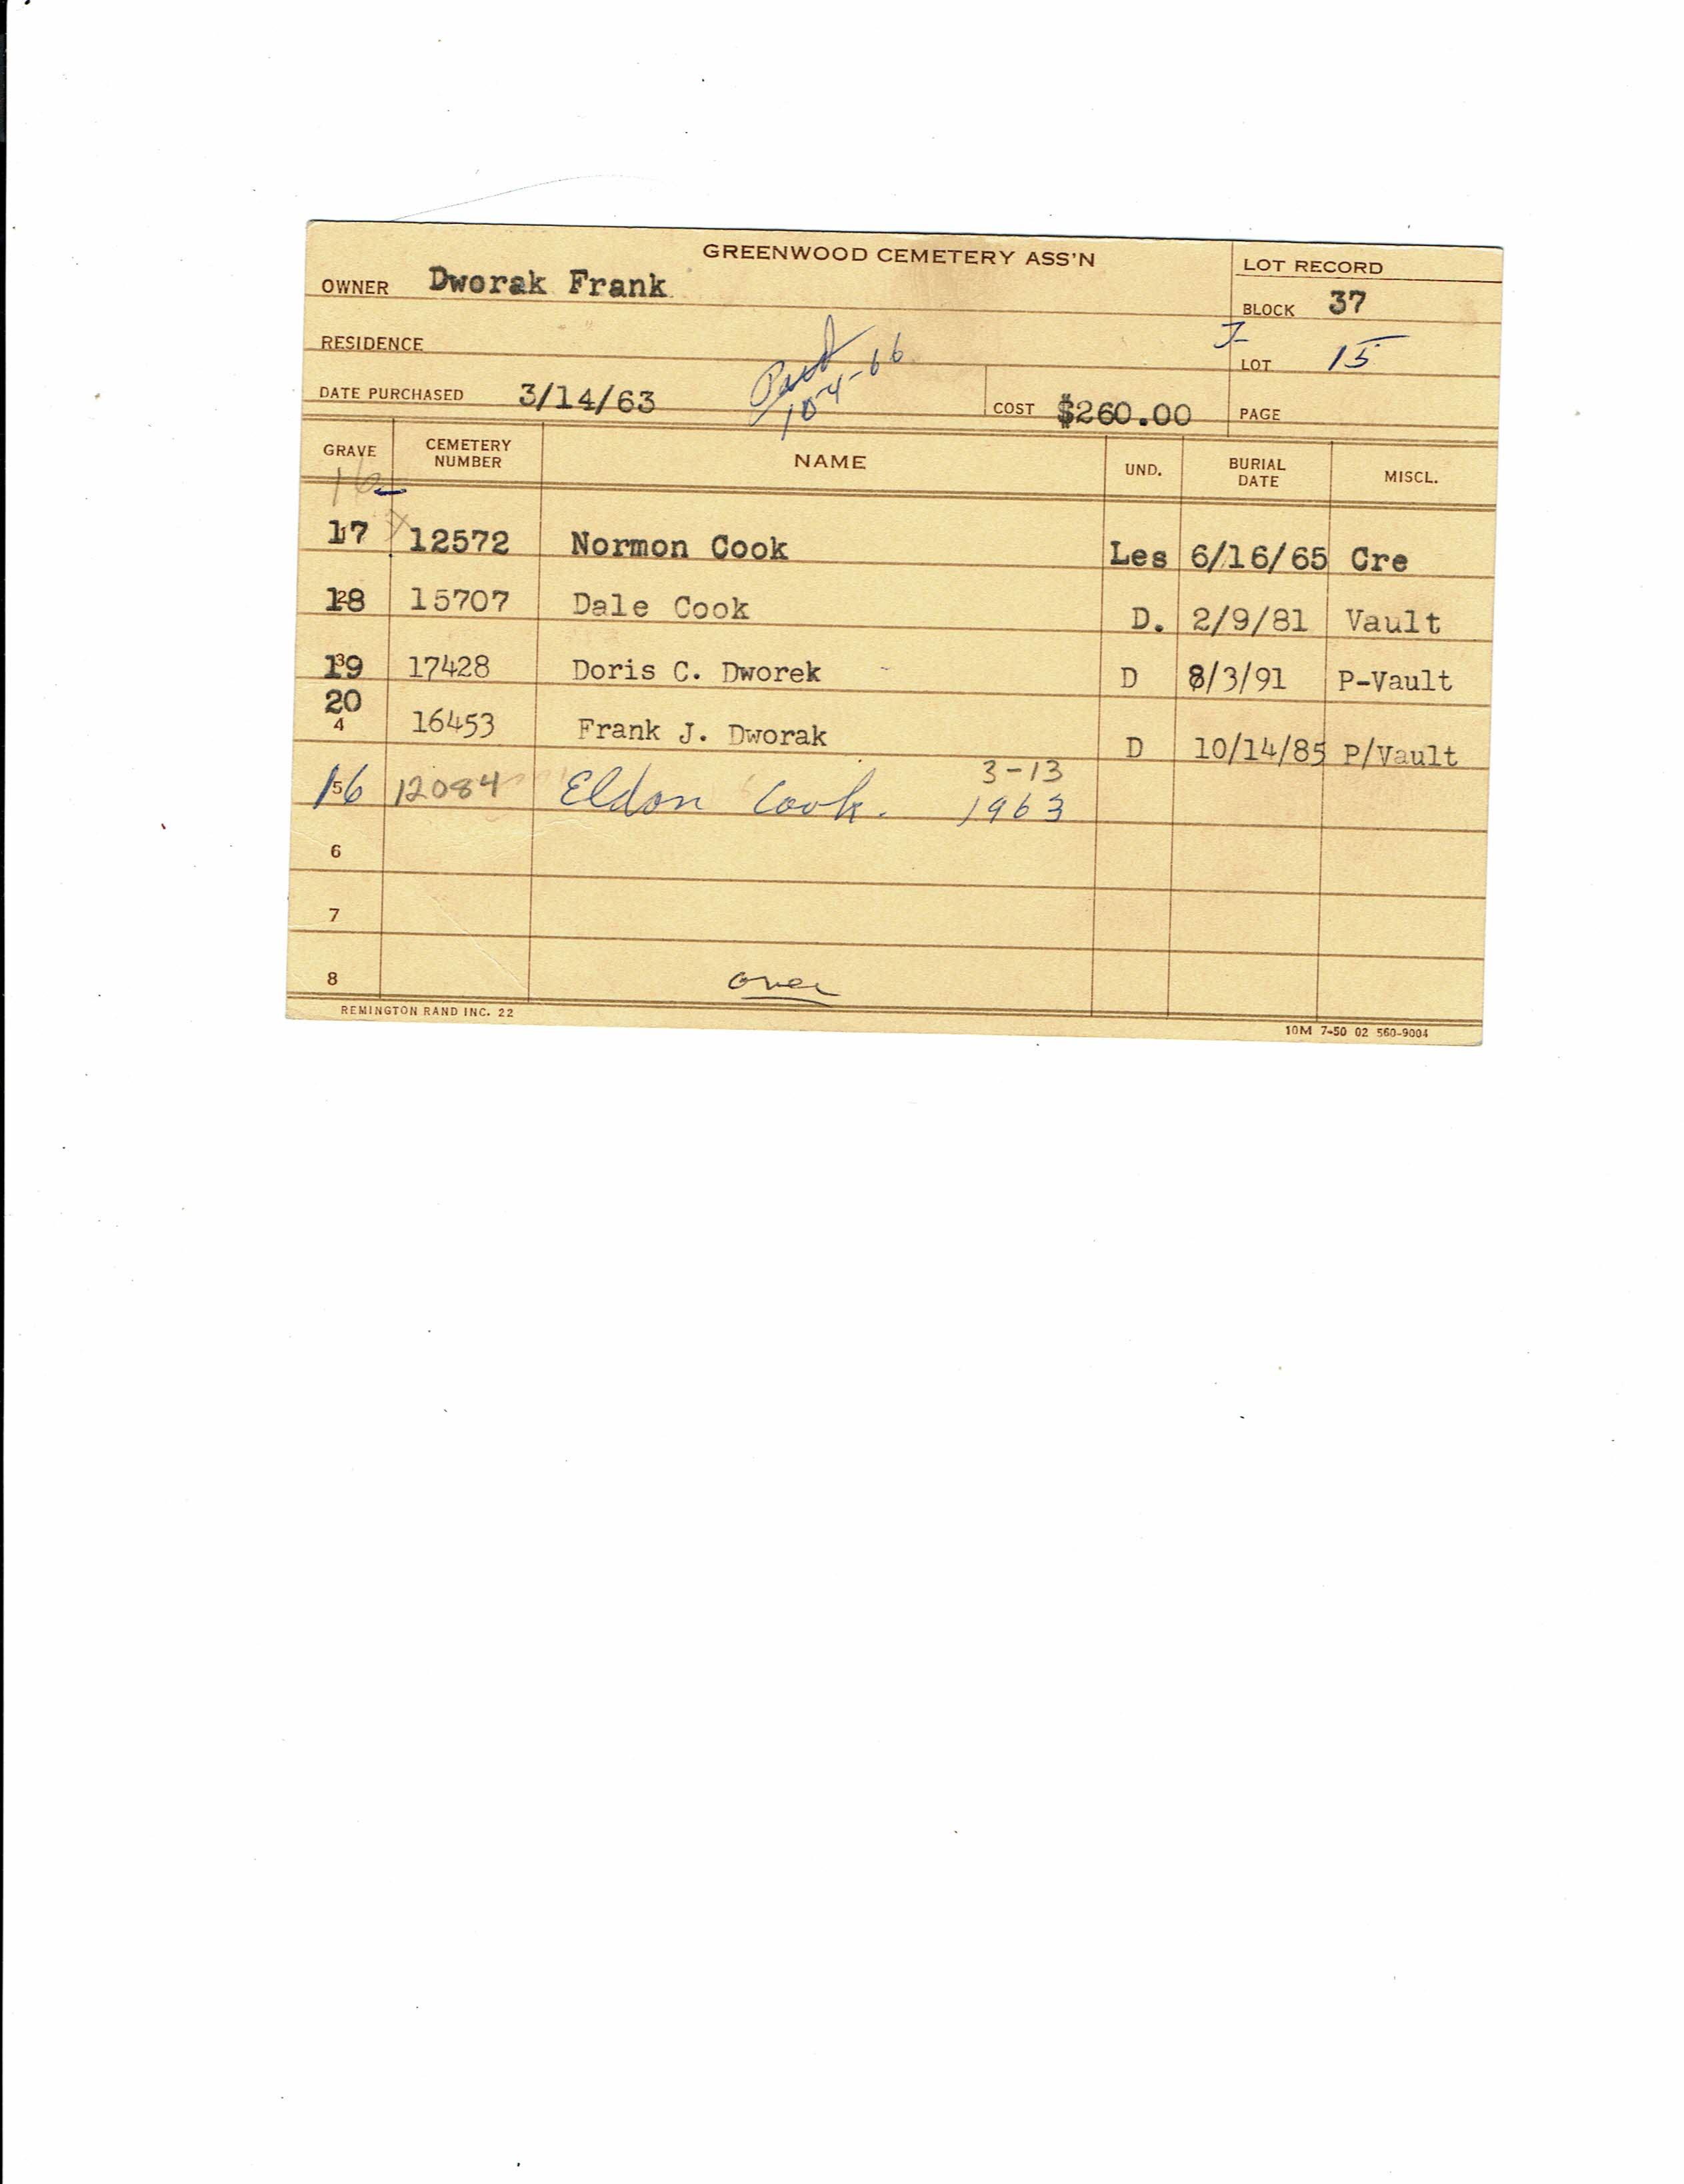 GREENWOOD CEMETERY ASS'N
LOT RECORD
OWNER Dworak Frank
BLOCK 37
RESIDENCE
LOT 15
DATE PURCHASED 3/14/63
Paid
10-4-66
COST $260.00
PAGE
GRAVE CEMETERY NUMBER NAME UND. BURIAL DATE MISCL.
16
17 12572 Normon Cook Les 6/16/65 Cre
18 15707 Dale Cook D. 2/9/81 Vault
19 17428 Doris C. Dworek D 8/3/91 P-Vault
20
4 16453 Frank J. Dworak D 10/14/85 P/Vault
16 12084 Eldon Cook. 3-13 1963
6
7
8 over
REMINGTON RAND INC. 22
10M 7-50 02 560-9004